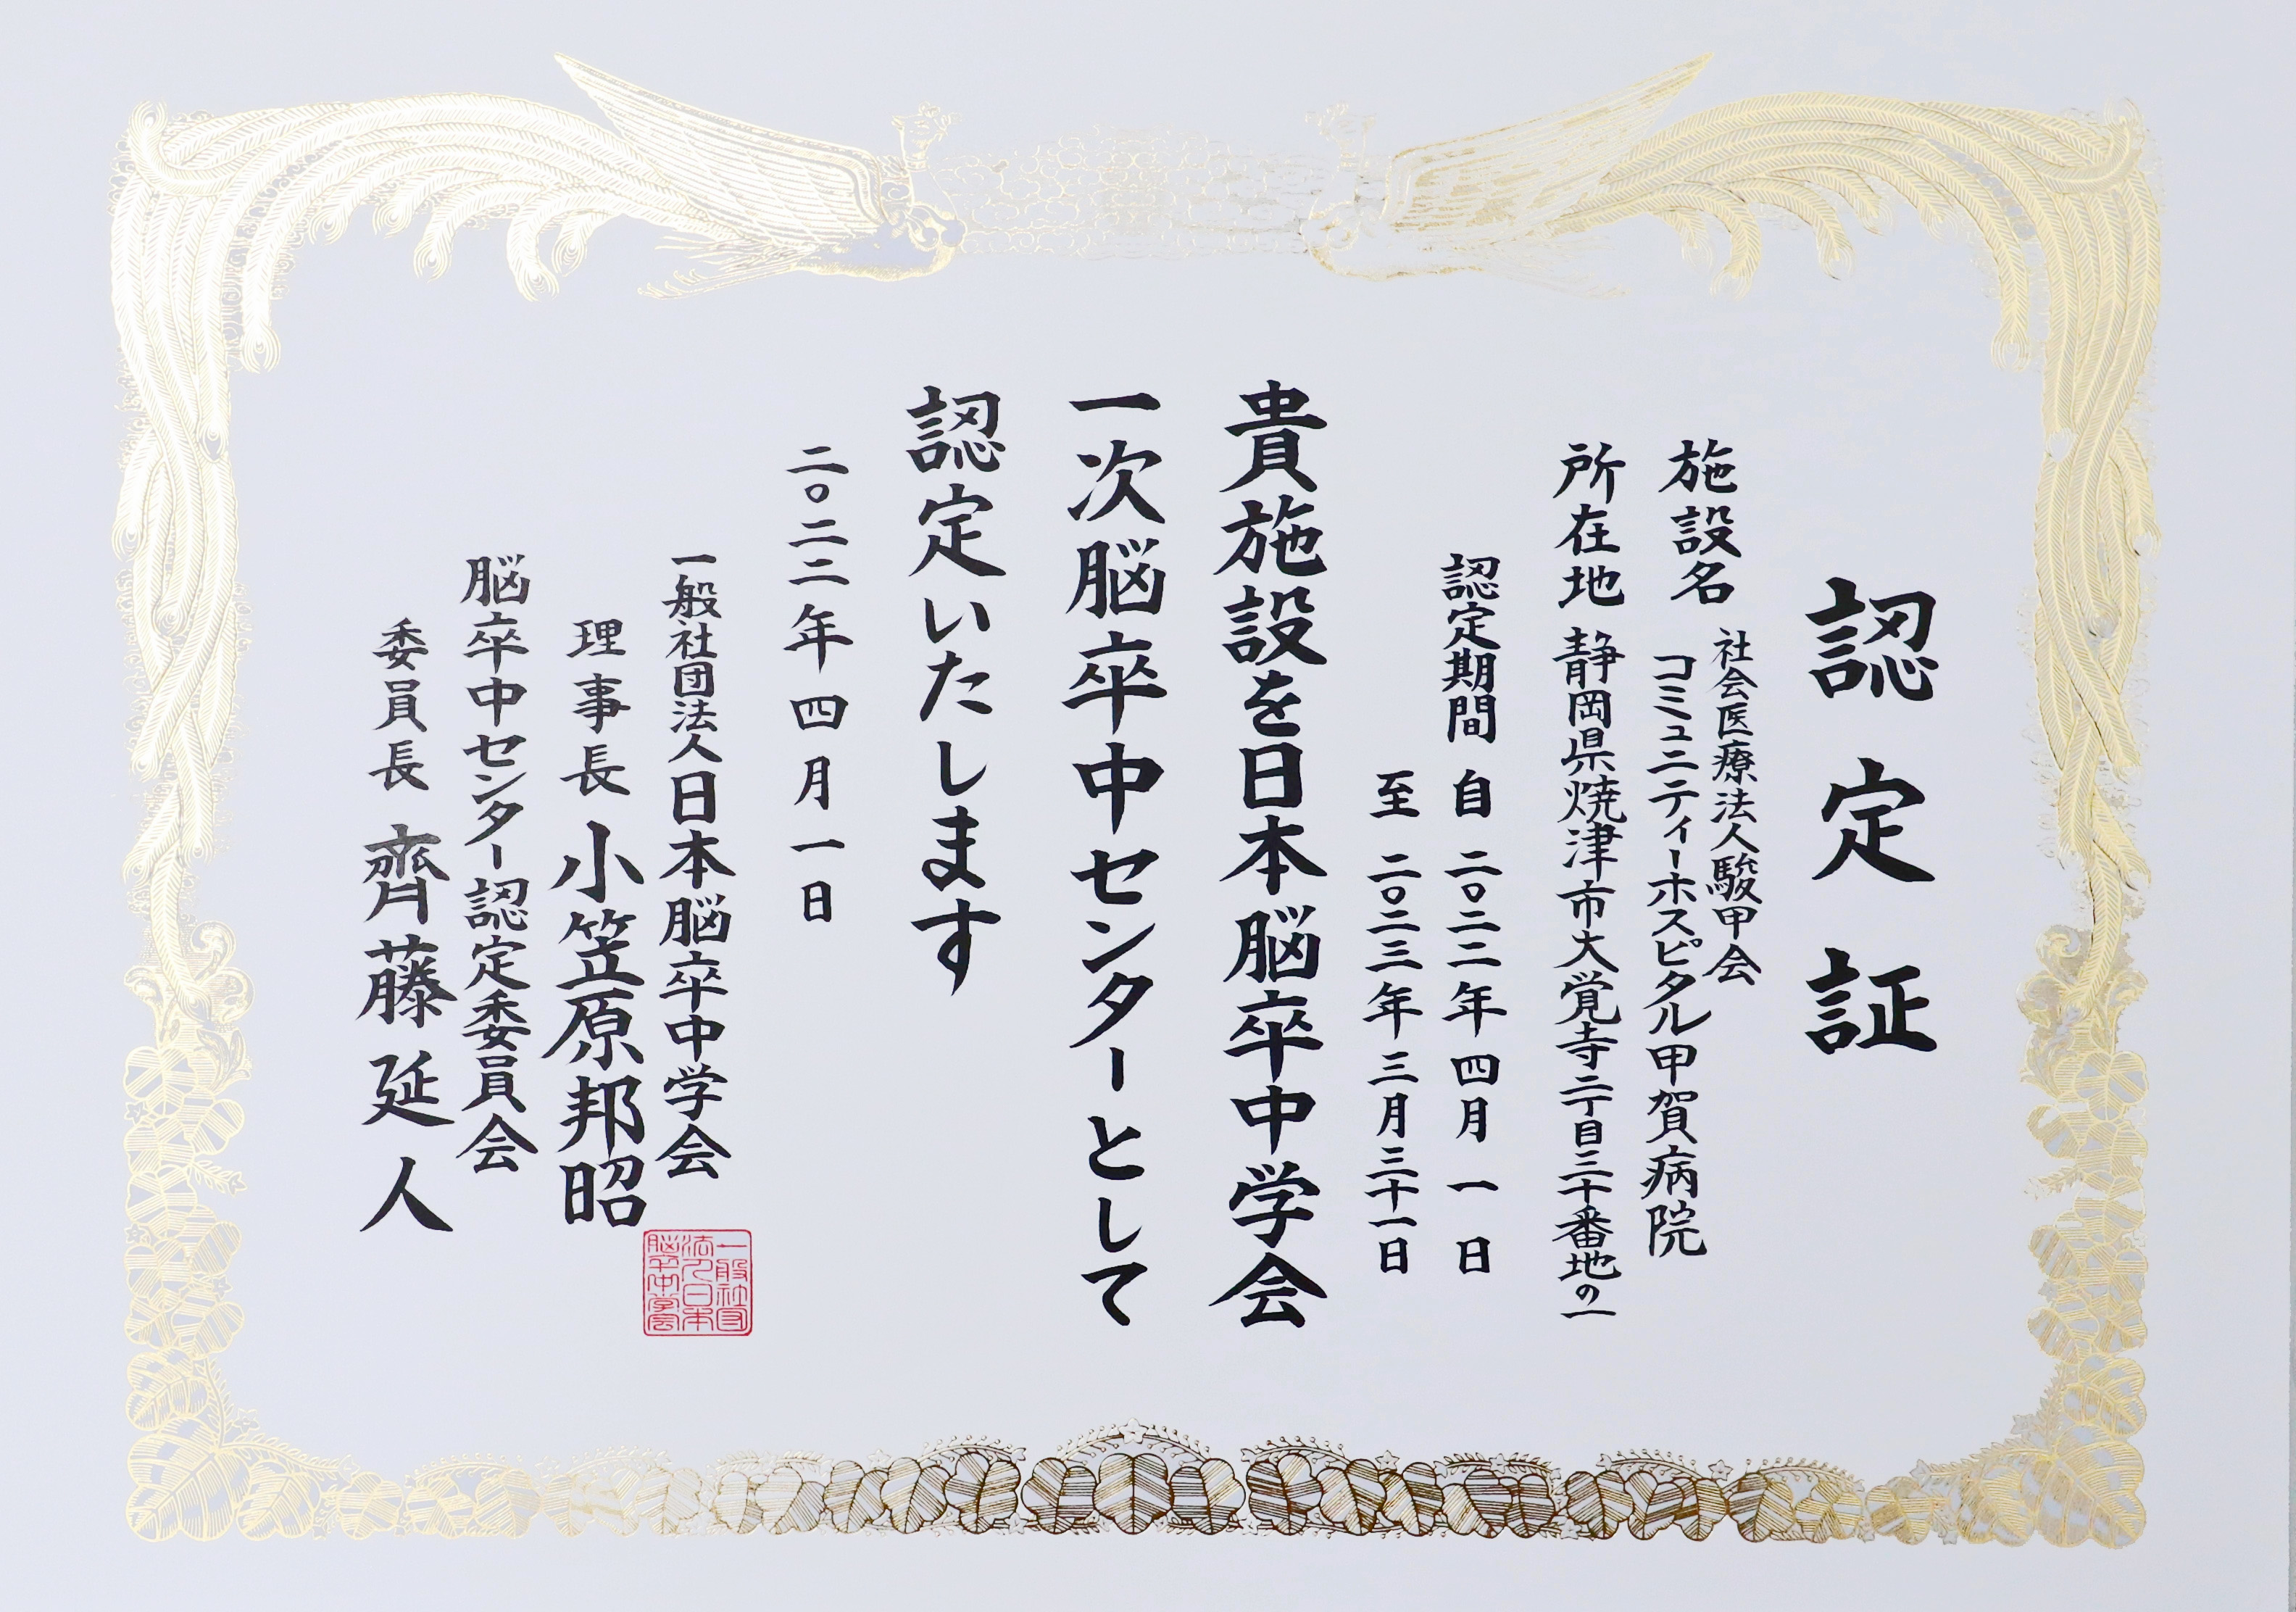 認定証
施設名 社会医療法人駿甲会
コミュニティーホスピタル甲賀病院
所在地 静岡県焼津市大覚寺二丁目三十番地の一
認定期間 自 二〇二二年四月一日
至 二〇二三年三月三十一日
貴施設を日本脳卒中学会
一次脳卒中センターとして
認定いたします
二〇二二年四月一日
一般社団法人日本脳卒中学会
理事長 小笠原邦昭
脳卒中センター認定委員会
委員長 齊藤延人
一般社団
法人日本
脳卒中学会